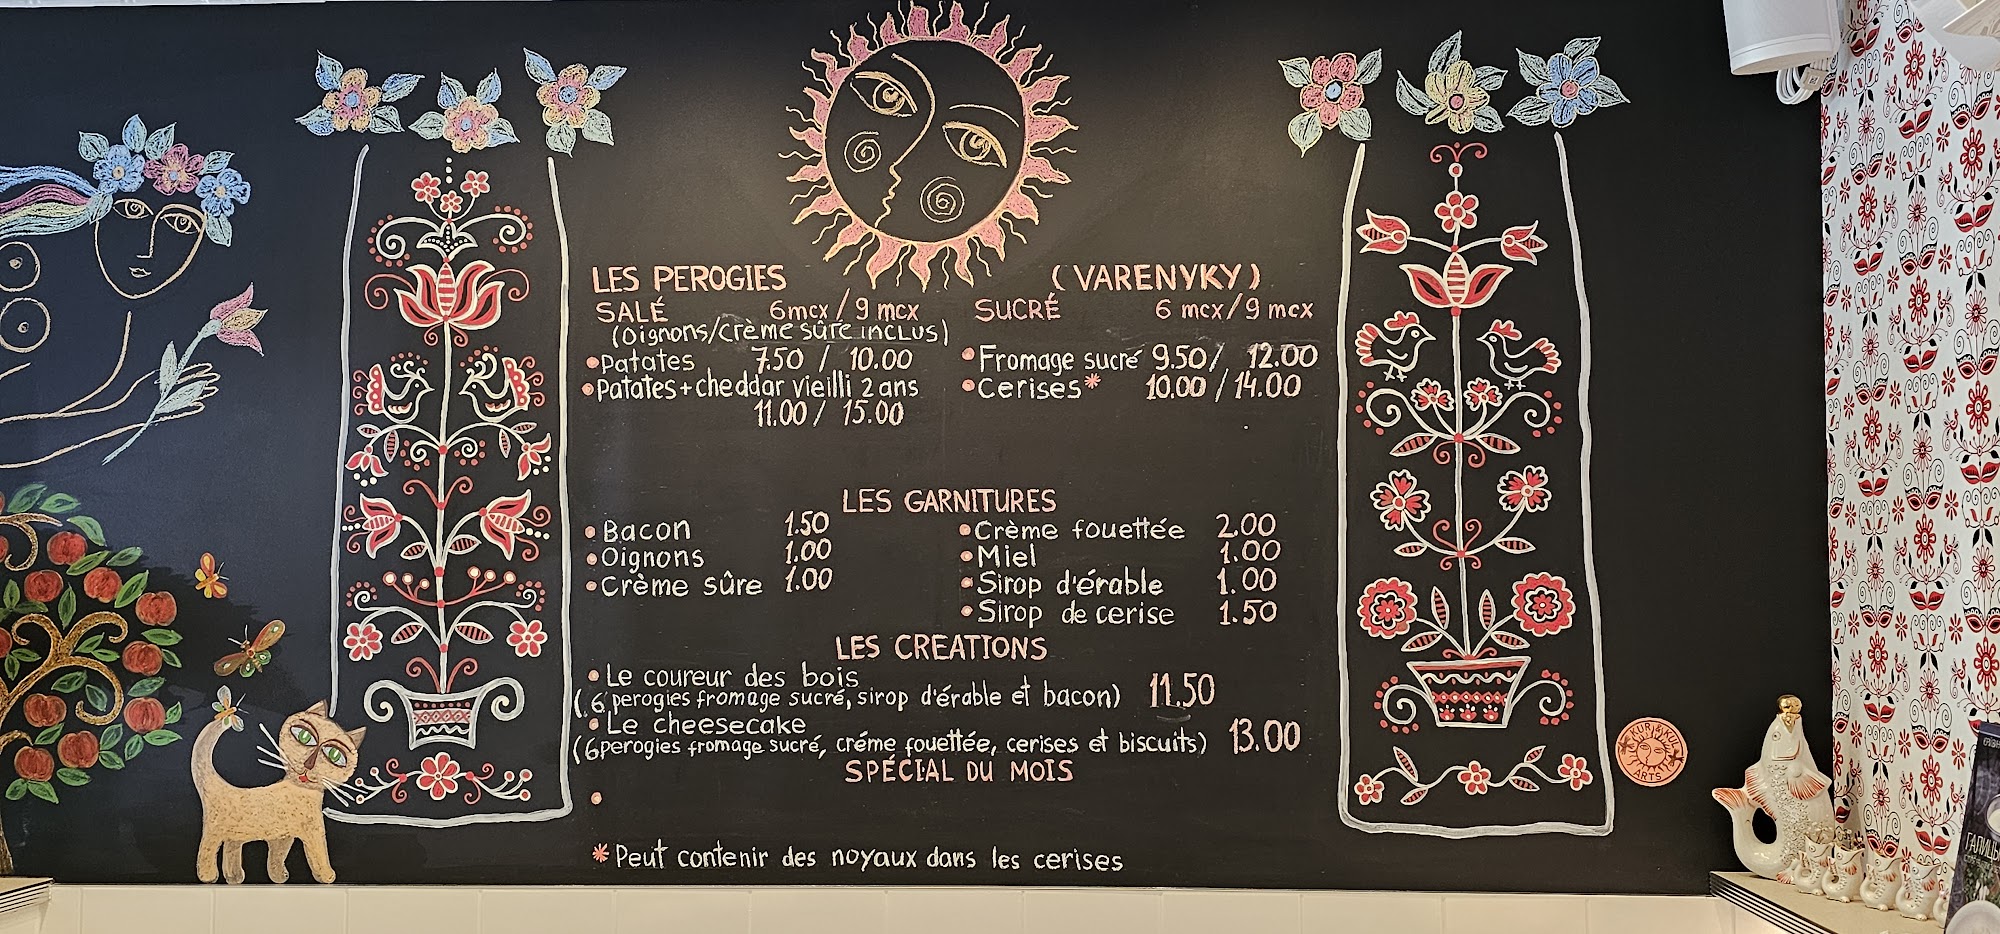 LES PEROGIES (VARENYKY)
SALÉ 6mcx / 9 mcx
(Oignons/crème sûre inclus)
Patates 7.50 / 10.00
Patates + cheddar vieilli 2 ans
11.00 / 15.00
SUCRÉ 6 mcx / 9 mcx
Fromage sucré 9.50 / 12.00
Cerises* 10.00 / 14.00
LES GARNITURES
Bacon 1.50
Oignons 1.00
Crème sûre 1.00
Crème fouettée 2.00
Miel 1.00
Sirop d'érable 1.00
Sirop de cerise 1.50
LES CREATIONS
Le coureur des bois
(6 perogies fromage sucré, sirop d'érable et bacon) 11.50
Le cheesecake
(6 perogies fromage sucré, créme fouettée, cerises et biscuits) 13.00
SPÉCIAL DU MOIS
* Peut contenir des noyaux dans les cerises
ARTS